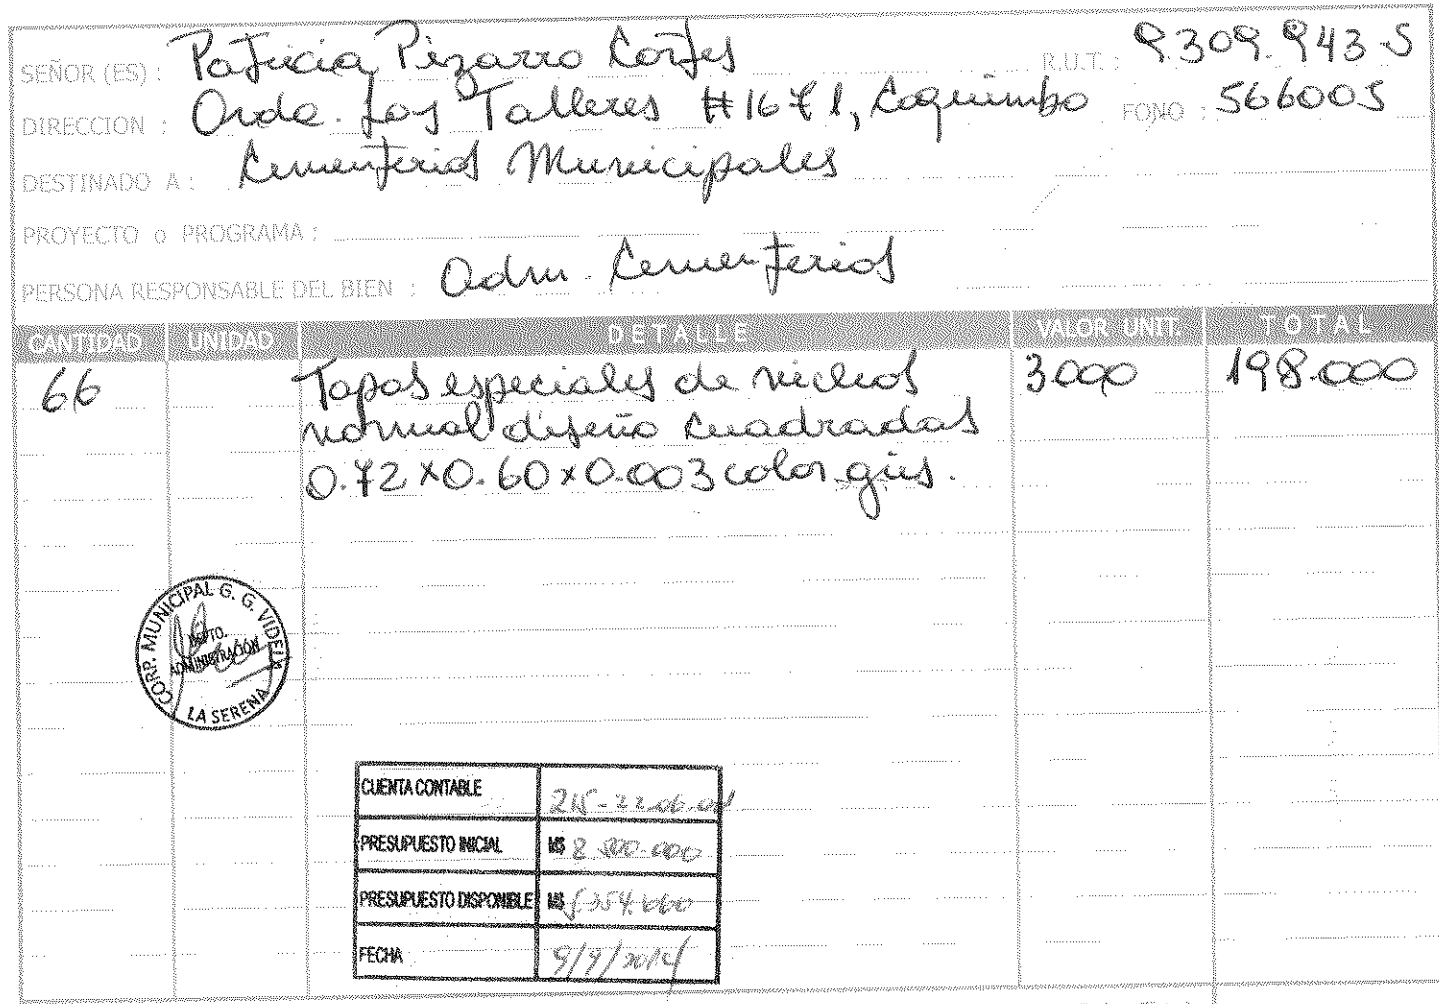 SEÑOR (ES) : Patricia Pizarro Cortes R.U.T. : 9.309.943-5
DIRECCION : Avda. Los Talleres #1671, Coquimbo FONO : 566005
DESTINADO A : Cementerios Municipales
PROYECTO o PROGRAMA :
PERSONA RESPONSABLE DEL BIEN : Adm. Cementerios
CANTIDAD UNIDAD DETALLE VALOR UNIT. TOTAL
66 Tapas especiales de nichos 3.000 198.000
normal diseño cuadradas
0.72 x 0.60 x 0.003 color gris.
CORP. MUNICIPAL G. G. VIDELA
DEPTO.
ADMINISTRACIÓN
LA SERENA
CUENTA CONTABLE 215-22.06.
PRESUPUESTO INICIAL M$
PRESUPUESTO DISPONIBLE M$
FECHA